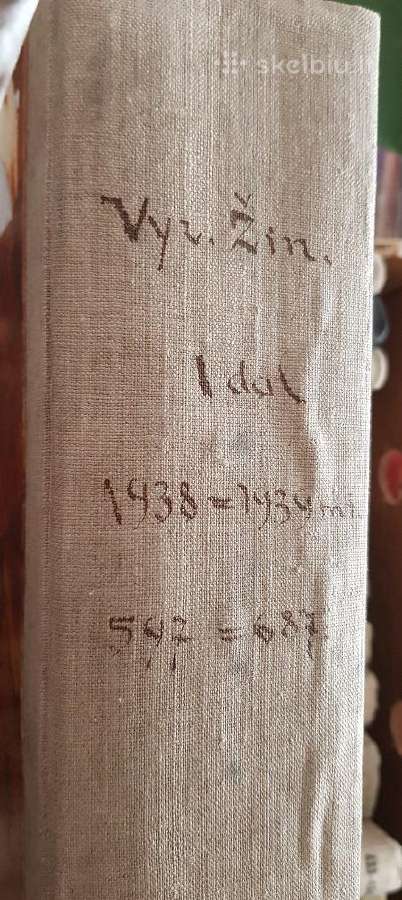 skelbiu.lt
Vyr. Žin.
I dal
1938 = 1939 m.
597 = 687